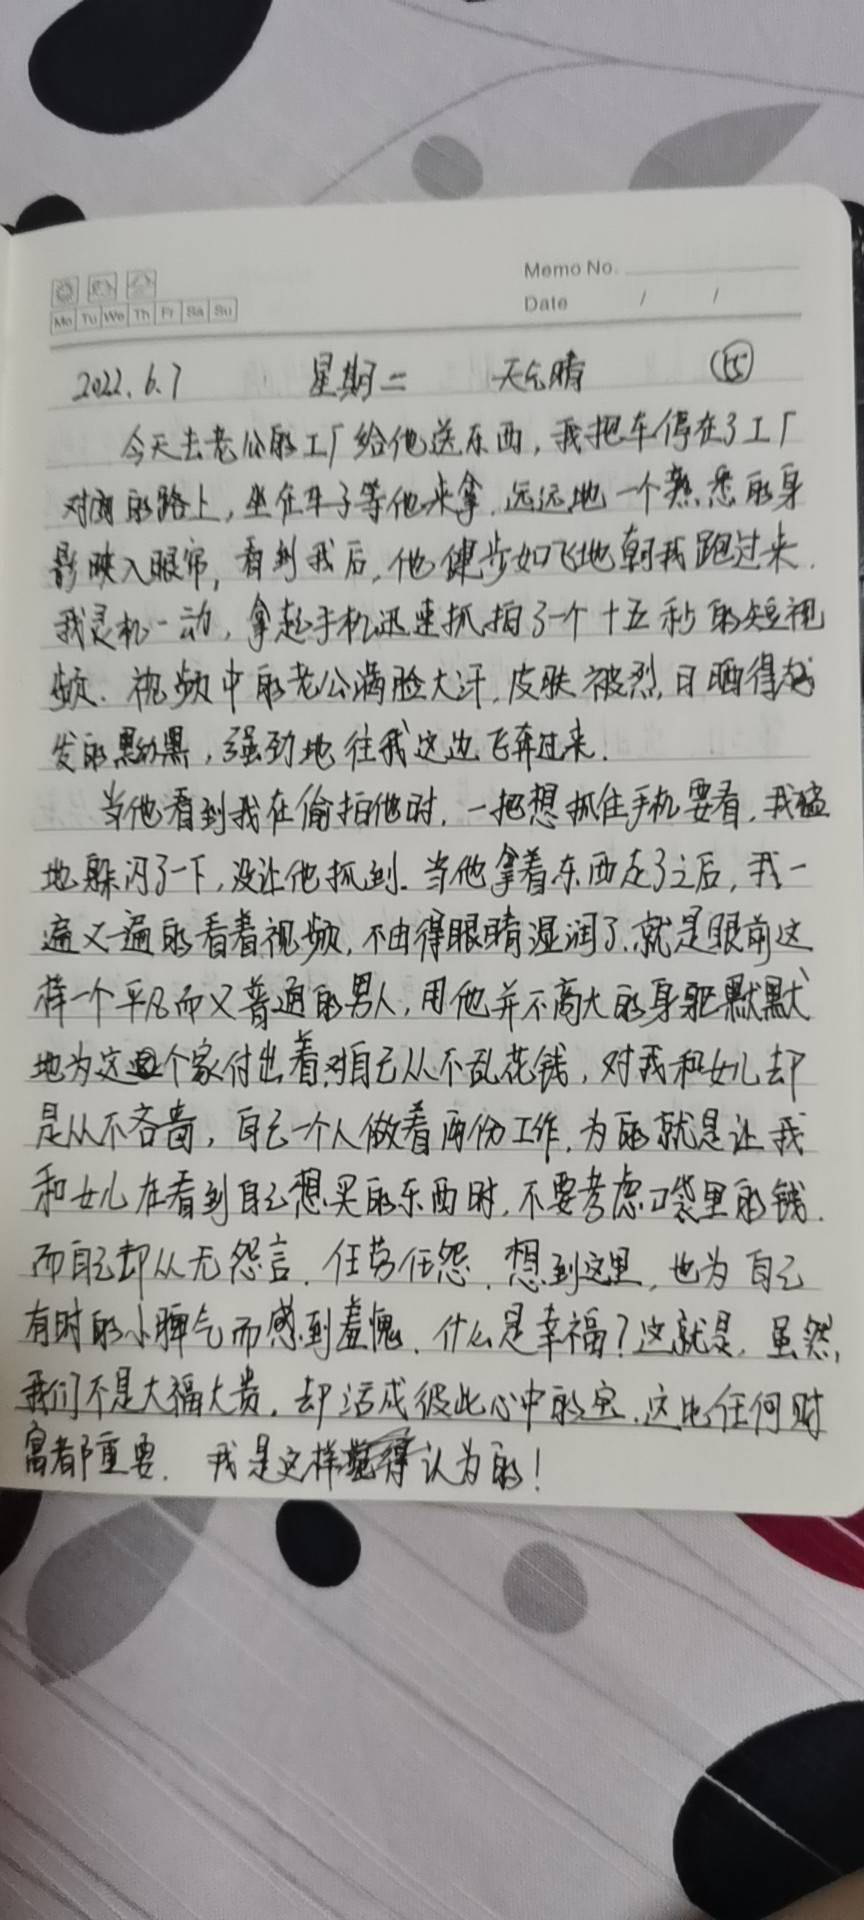 Memo No.
Mo Tu We Th Fr Sa Su
Date / /
2022.6.7 星期二 天气晴 55
今天去老公的工厂给他送东西,我把车停在了工厂
对面的路上,坐在车子等他来拿.远远地一个熟悉的身
影映入眼帘,看到我后,他健步如飞地朝我跑过来.
我灵机一动,拿起手机迅速抓拍了一个十五秒的短视
频.视频中的老公满脸大汗,皮肤被烈日晒得越
发的黝黑,强劲地往我这边飞奔过来!
当他看到我在偷拍他时,一把想抓住手机要看,我猛
地躲闪了一下,没让他抓到.当他拿着东西走了之后,我一
遍又一遍的看着视频,不由得眼睛湿润了.就是眼前这
样一个平凡而又普通的男人,用他并不高大的身躯默默
地为这个家付出着.对自己从不乱花钱,对我和女儿却
是从不吝啬,自己一个人做着两份工作,为的就是让我
和女儿在看到自己想买的东西时,不要考虑口袋里的钱.
而自己却从无怨言.任劳任怨.想到这里,也为自己
有时的小脾气而感到羞愧.什么是幸福?这就是.虽然,
我们不是大福大贵.却活成彼此心中的宝.这比任何财
富都重要.我是这样认为的!